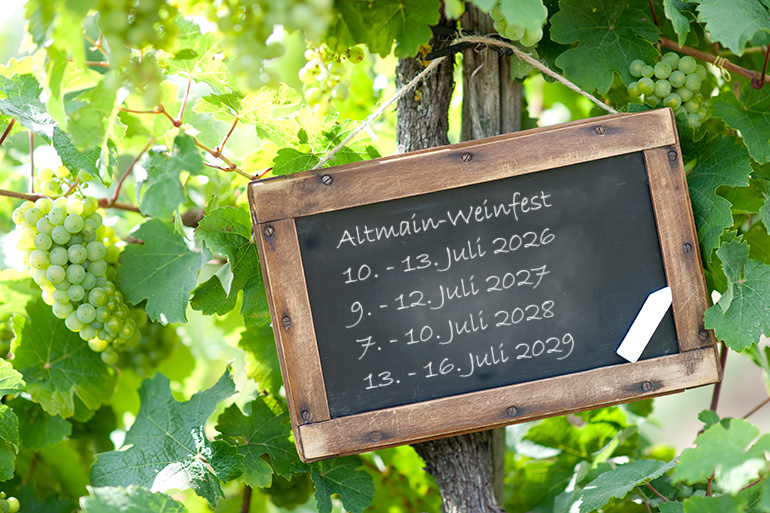 Altmain-Weinfest
10. - 13. Juli 2026
9. - 12. Juli 2027
7. - 10. Juli 2028
13. - 16. Juli 2029